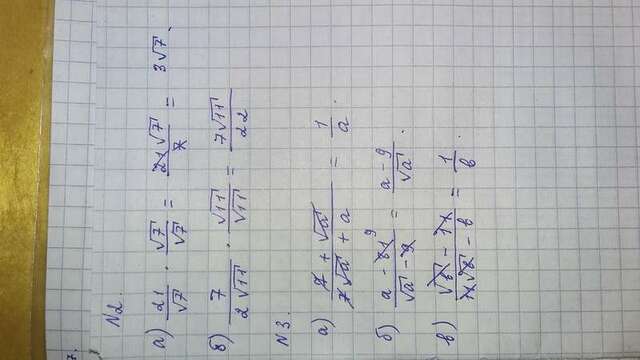 7.
№2.
а) 21/√7 · √7/√7 = 21√7/7 = 3√7.
б) 7/2√11 · √11/√11 = 7√11/22
№3.
а) 7 + √a / 7√a + a = 1/a.
б) a - 81 9 / √a - 9 = a - 9/√a.
в) √b - 11 / 11√b - b = 1/b.